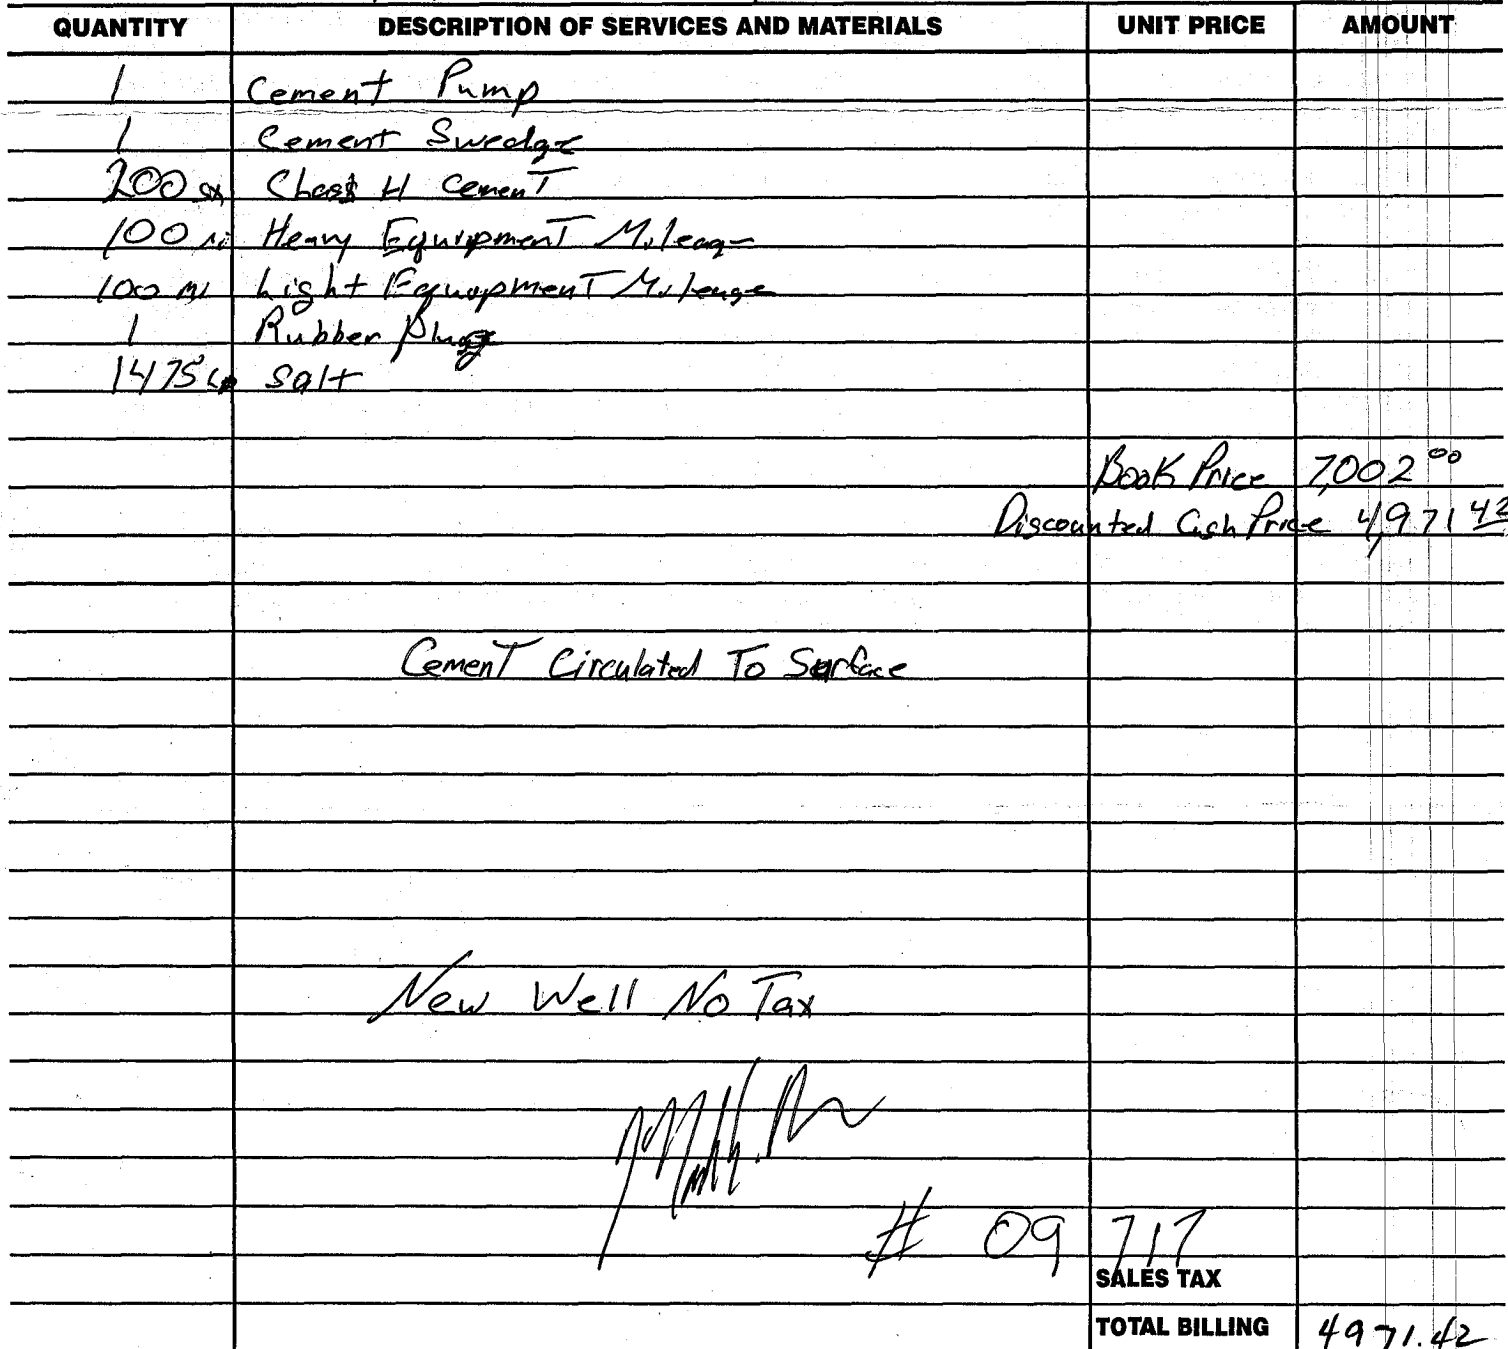 QUANTITY DESCRIPTION OF SERVICES AND MATERIALS UNIT PRICE AMOUNT
1 Cement Pump
1 Cement Swedge
200 sx Class H Cement
100 mi Heavy Equipment Mileage
100 mi Light Equipment Mileage
1 Rubber Plug
1475 Lb Salt
Book Price 7,002 00
Discounted Cash Price 4,971 42
Cement Circulated To Surface
New Well No Tax
# 09 717
SALES TAX
TOTAL BILLING 4971.42